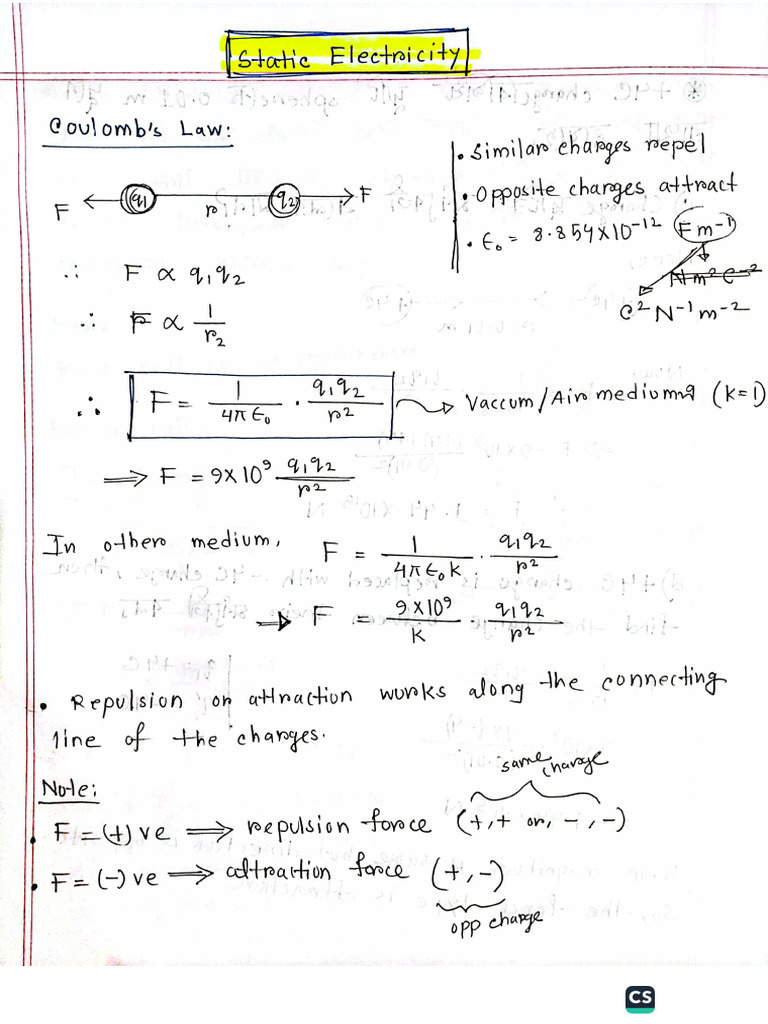 Static Electricity
Coulomb's Law:
F ← q₁ r q₂ → F
• Similar charges repel
• Opposite charges attract
• ε₀ = 8.854×10⁻¹² Fm⁻¹
N m² C⁻²
C² N⁻¹ m⁻²
∴ F ∝ q₁q₂
∴ F ∝ 1/r₂
∴ F = 1/4πε₀ · q₁q₂/r² → Vaccum/Air medium (k=1)
⟹ F = 9×10⁹ q₁q₂/r²
In other medium, F = 1/4πε₀k · q₁q₂/r²
⟹ F = 9×10⁹/k · q₁q₂/r²
• Repulsion or attraction works along the connecting
line of the charges.
same charge
Note:
• F = (+)ve ⟹ repulsion force (+,+ or, -,-)
• F = (-)ve ⟹ attraction force (+,-)
opp charge
CS